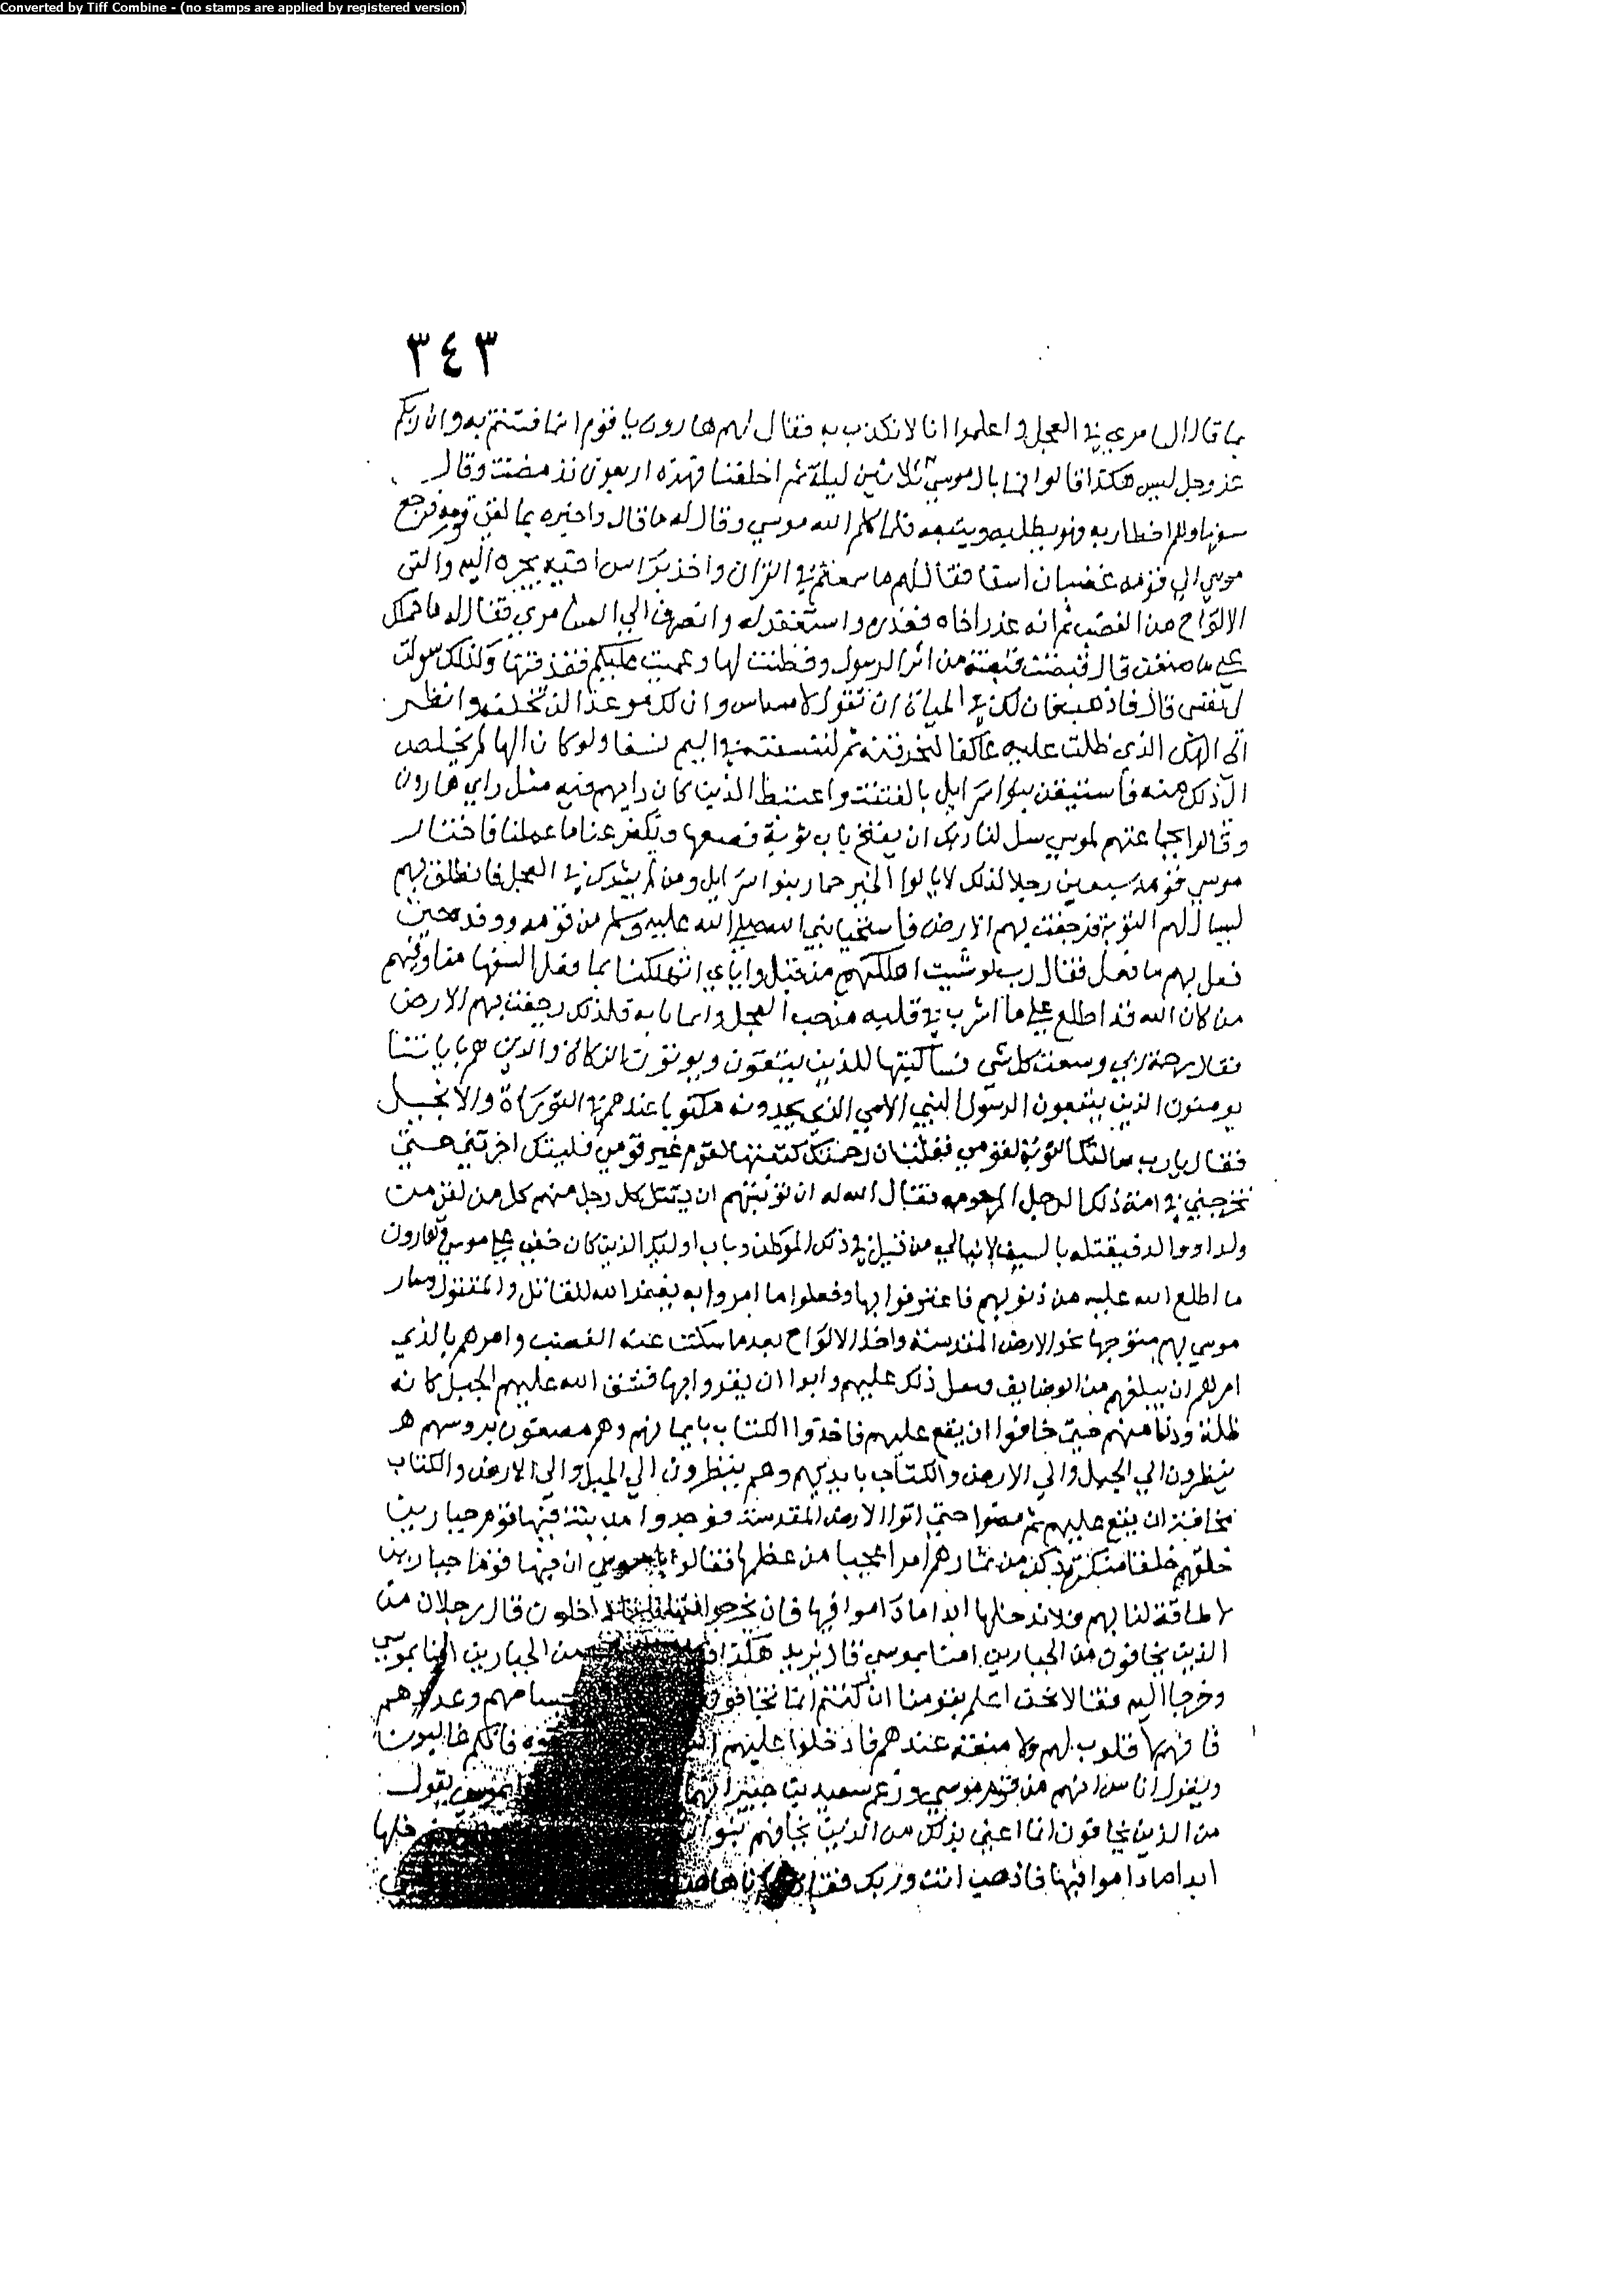 Converted by Tiff Combine - (no stamps are applied by registered version)
٣٤٣
بما قال السامري في العجل واعلموا انا لا نكذب به فقال لهم هارون يا قوم انما فتنتم به وان ربكم
عز وجل ليس هكذا قالوا فما بال موسى ثلاثين ليلة ثم اخلفنا فهذه اربعون قد مضت وقال
سفهاوهم اخطا ربه فهو يطلبه ويتبعه فلما كلم الله موسي وقال له ما قال واخبره بما لقي قومه فرجع
موسي الي قومه غضبان اسفا فقال لهم ما سمعتم في القران واخذ براس اخيه يجره اليه والقى
الالواح من الغضب ثم انه عذر اخاه فعذره واستغفر له وانصرف الي السامري فقال له ما حملك
علي ما صنعت قال قبضت قبضة من اثر الرسول وفطنت لها وعميت عليكم فقذفتها وكذلك سولت
لي نفسي قال فاذهب فان لك في الحياة ان تقول لا مساس وان لك موعدا لن تخلفه وانظر
الى الهك الذي ظلت عليه عاكفا لنحرقنه ثم لننسفنه في اليم نسفا ولو كان الها لم يخلص
الى ذلك منه فاستيقن بنوا اسرايل بالفتنة واغتبط الذين كان رايهم فيه مثل راي هارون
وقالوا جماعتهم لموسي سل لنا ربك ان يفتح باب توبة نصنعها ويكفر عنا ما عملنا فاختار
موسي قومه سبعين رجلا لذلك لا يالوا الخير خيار بنوا اسرايل ومن لم يشرك في العجل فانطلق بهم
ليسال لهم التوبة فرجفت بهم الارض فاستحيا نبي الله صلي الله عليه وسلم من قومه ووفده حين
فعل بهم ما فعل فقال رب لو شيت اهلكتهم من قبل واياي اتهلكنا بما فعل السفها منا وفيهم
من كان الله قد اطلع علي ما اشرب في قلبه من حب العجل وايمانا به فلذلك رجفت بهم الارض
فقال رحمتي وسعت كل شي فساكتبها للذين يتقون ويوتون الزكاة والذين هم باياتنا
يومنون الذين يتبعون الرسول النبي الامي الذي يجدونه مكتوبا عندهم في التوراة والانجيل
فقال يا رب سالتك التوبة لقومي فقلت ان رحمتك كتبتها لقوم غير قومي فليتك اخرتني حتي
تخرجني في امة ذلك الرجل المرحومه فقال الله له ان توبتهم ان يقتل كل رجل منهم كل من لقي من
ولد او والد فيقتله بالسيف لا يبالي من قتل في ذلك الموطن وتاب اوليك الذين كان خفي علي موسى وهارون
ما اطلع الله عليه من ذنوبهم فاعترفوا بها وفعلوا ما امروا به فغفر الله للقاتل والمقتول وسار
موسي بهم متوجها نحو الارض المقدسة واخذ الالواح بعد ما سكت عنه الغضب وامرهم بالذي
امرهم ان يبلغهم من الوضايف وثقل ذلك عليهم وابوا ان يقروا بها فنتق الله عليهم الجبل كانه
ظلة ودنا منهم حتي خافوا ان يقع عليهم فاخذوا الكتاب بايمانهم وهم مصغون بروسهم هم
ينظرون الي الجبل والي الارض والكتاب بايديهم وهم ينظرون الي الجبل والي الارض والكتاب
مخافة ان يقع عليهم ثم مضوا حتي اتوا الارض المقدسة فوجدوا مدينة فيها قوم جبارين
خلقهم خلقا منكرا وذكر من ثمارهم امرا عجبا من عظمها فقالوا يا موسي ان فيها قوما جبارين
لا طاقة لنا بهم ولا ندخلها ابدا ما داموا فيها فان يخرجوا منها فانا داخلون قال رجلان من
الذين يخافون من الجبارين امنا بموسي قال يزيد هكذا من الجبارين امنا بموسي
وخرجا اليه فقالا نحن اعلم بقومنا ان كنتم انما تخافون اجسامهم وعددهم
فانهم لا قلوب لهم ولا منعة عندهم فادخلوا عليهم فانكم غالبون
ويقول اناس انهم من قوم موسي وزعم سعيد بن جبير انهما بموسي يقول
من الذين يخافون انما اعني بذلك من الذين يخافهم بنوا
ابدا ما داموا فيها فاذهب انت وربك فقاتلا انا هاهنا